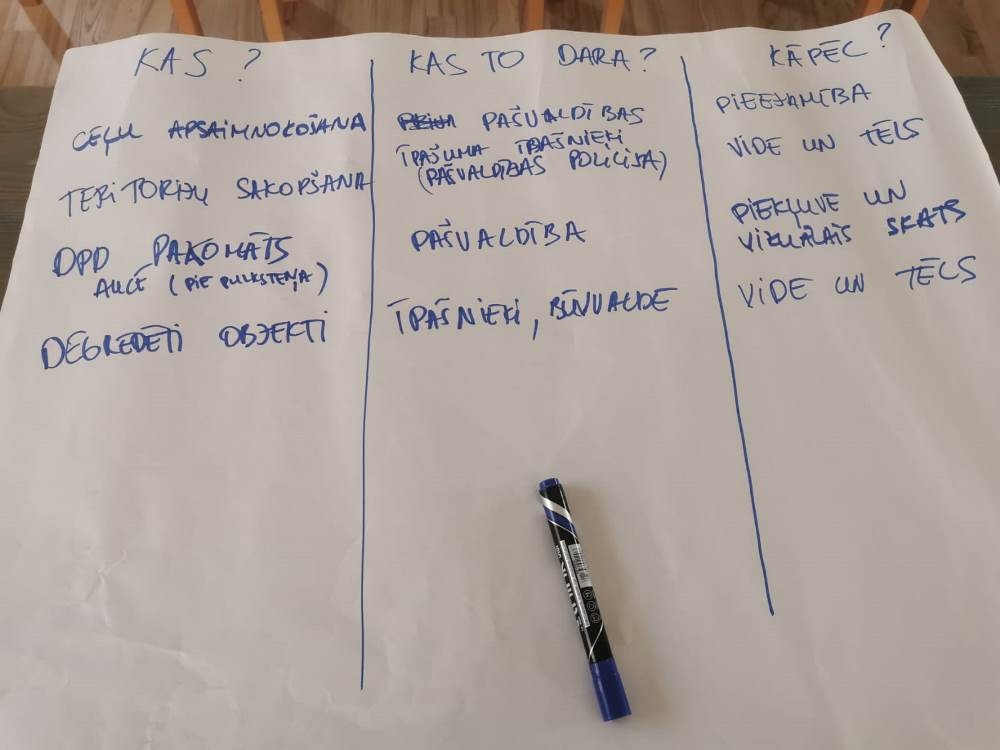 KAS ?
KAS TO DARA?
KĀPĒC?
CEĻU APSAIMNOKOŠANA
PAŠVALDĪBAS
PIEEJAMĪBA
TERITORIJU SAKOPŠANA
ĪPAŠUMA ĪPAŠNIEKI
(PAŠVALDĪBAS POLICIJA)
VIDE UN TĒLS
DPD PAKOMĀTS
AUCĒ (PIE PULKSTEŅA)
PAŠVALDĪBA
PIEKĻUVE UN
VIZUĀLAIS SKATS
DEGREDĒTI OBJEKTI
ĪPAŠNIEKI, BŪVVALDE
VIDE UN TĒLS